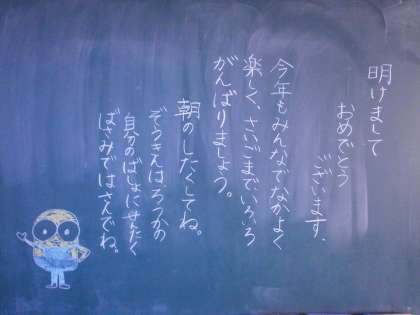 明けまして
おめでとう
ございます。
今年もみんなでなかよく
楽しく、さいごまでいろいろ
がんばりましょう。
朝のしたくしてね。
ぞうきんはろうかの
自分のばしょにせんたく
ばさみではさんでね。